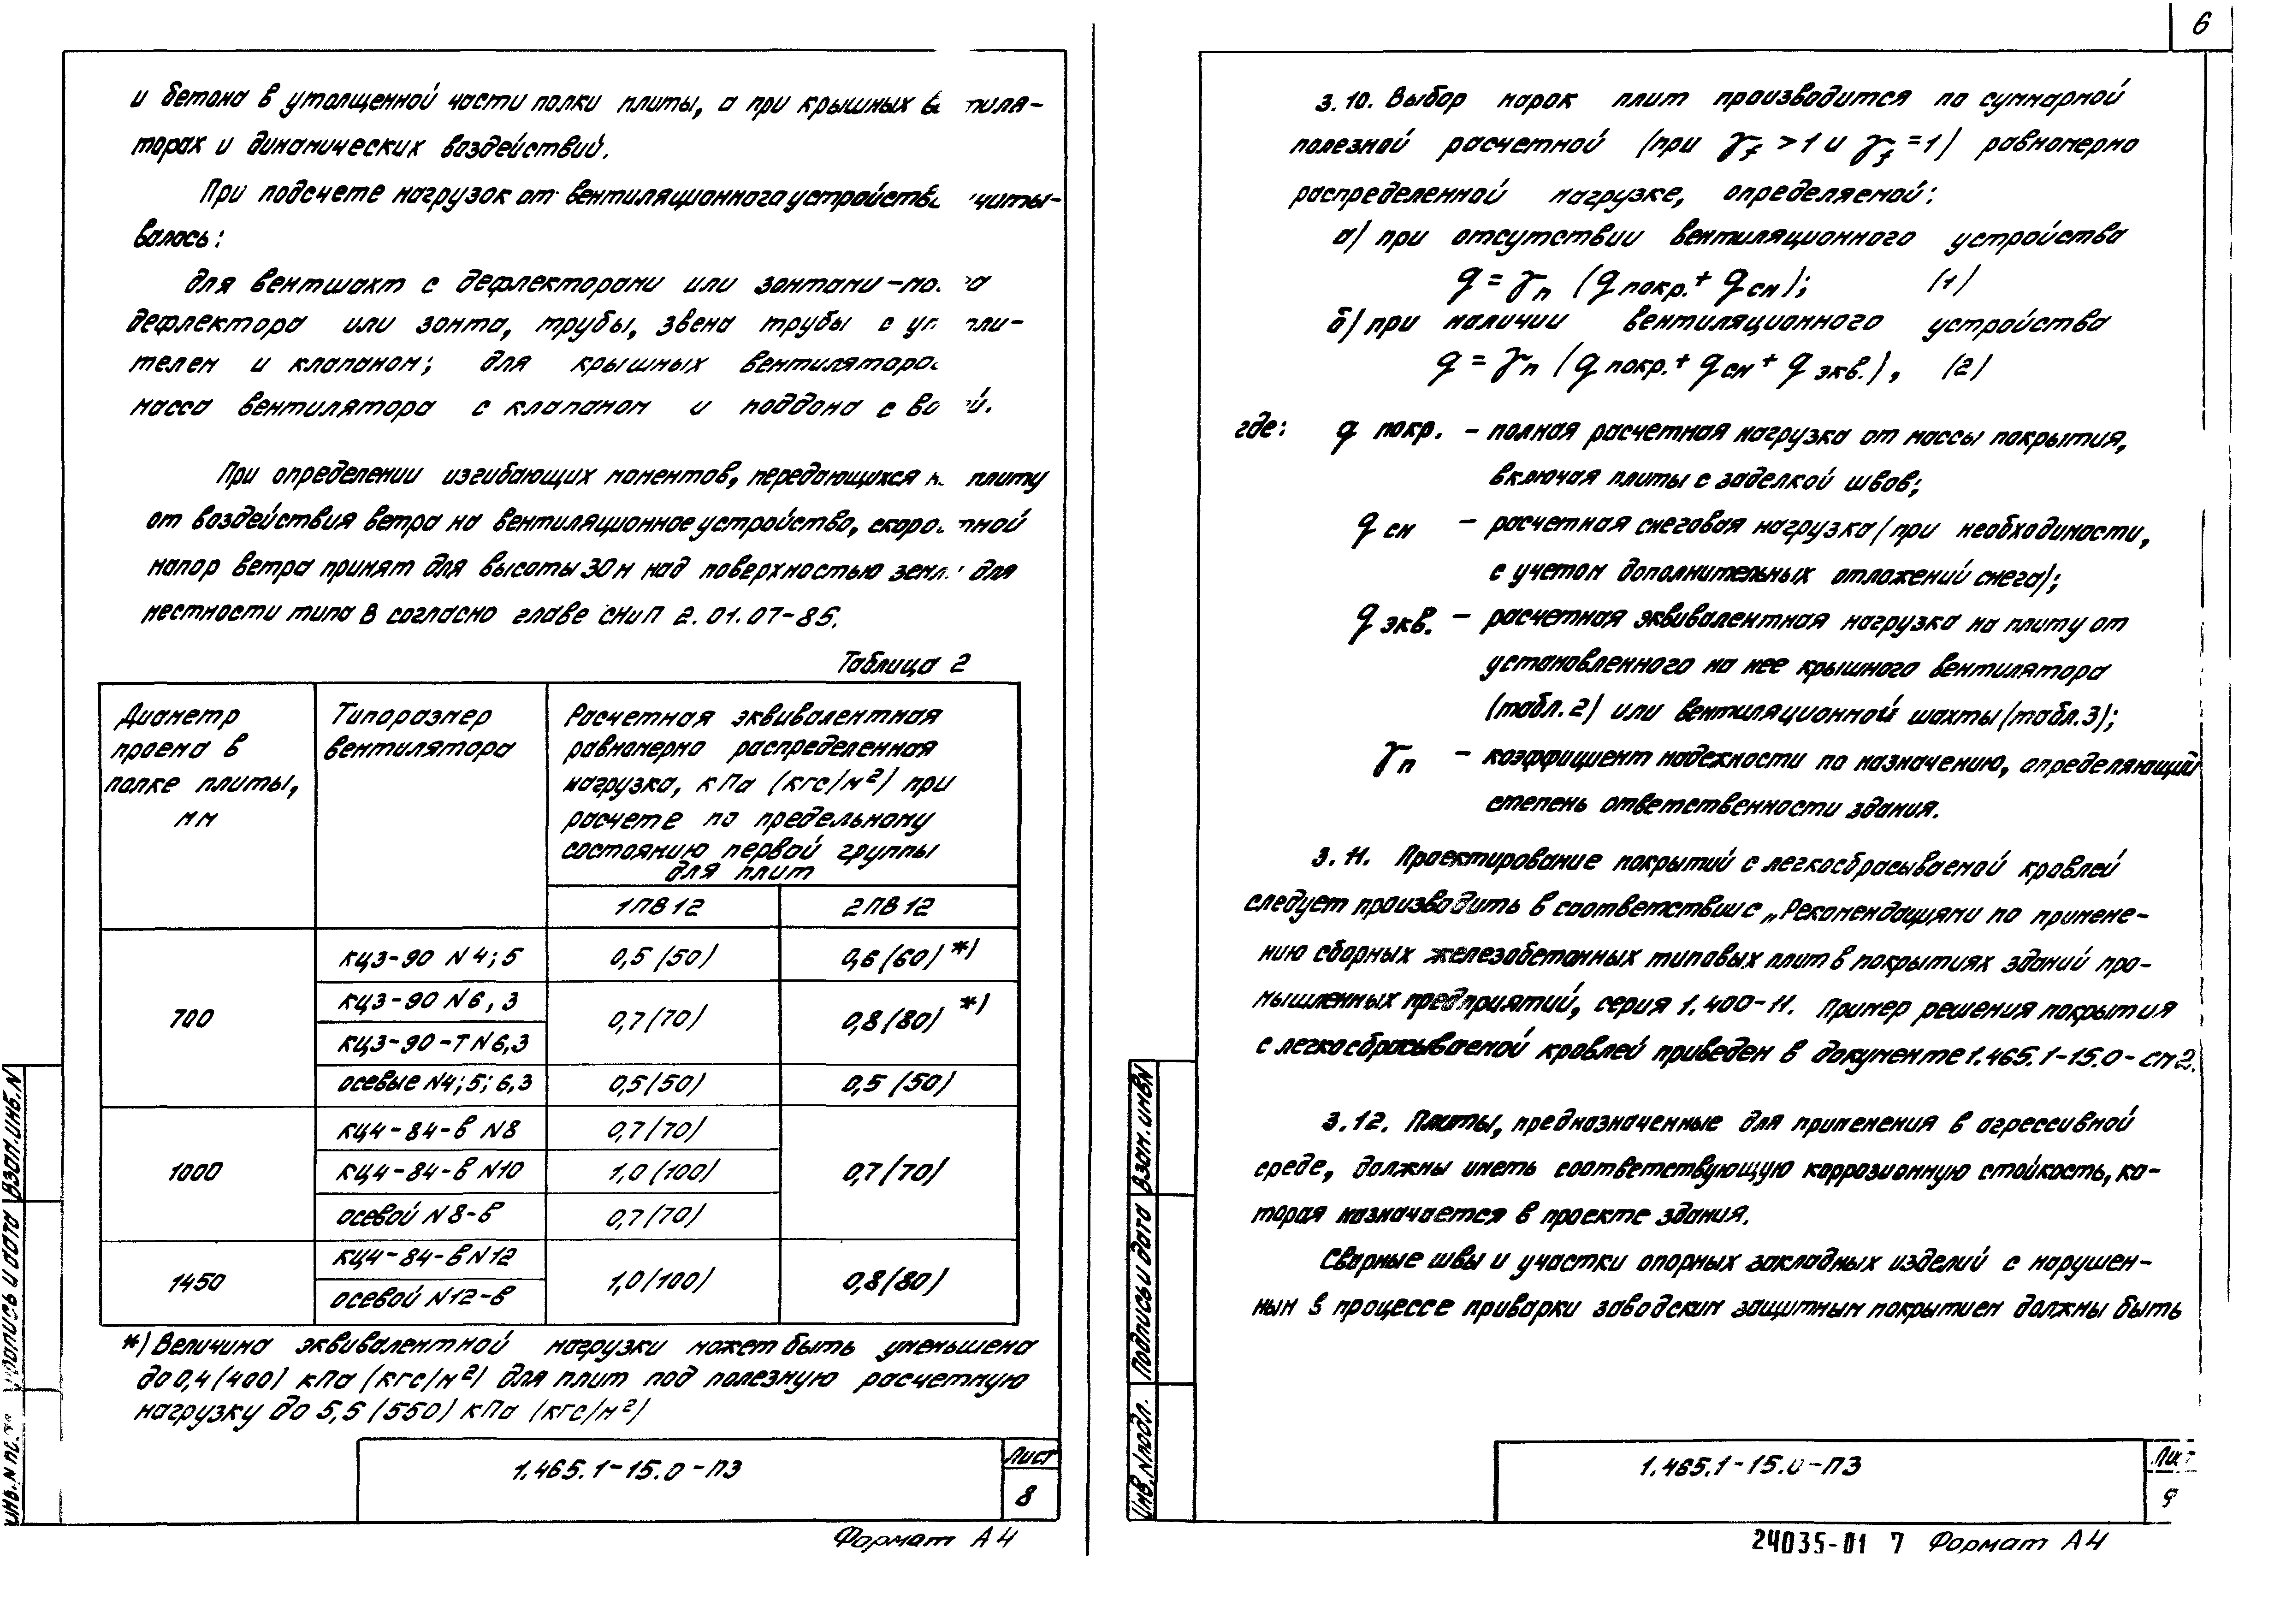 6
и бетона в утолщенной части полки плиты, а при крышных
торах и динамических воздействий.
При подсчете нагрузок от вентиляционного устройства
валась:
для вентшахт с дефлекторами или зонтами –
дефлектора или зонта, трубы, звена трубы с
телем и клапаном; для крышных вентиляторов
масса вентилятора с клапаном и поддона с
При определении изгибающих моментов, передающихся плиту
от воздействия ветра на вентиляционное устройство,
напор ветра принят для высоты 30 м над поверхностью для
местности типа В согласно главе СНиП 2.01.07-85.
Таблица 2
Диаметр проема в полке плиты, мм
Типоразмер вентилятора
Расчетная эквивалентная
равномерно распределенная
нагрузка, кПа (кгс/м²) при
расчете по предельному
состоянию первой группы
для плит
1ПВ12 2ПВ12
700 КЦ3-90 N4; 5 0,5 (50) 0,6 (60) *)
КЦ3-90 N6, 3 0,7 (70) 0,8 (80) *)
КЦ3-90-Т N6,3
осевые N4; 5; 6,3 0,5 (50) 0,5 (50)
1000 КЦ4-84-В N8 0,7 (70) 0,7 (70)
КЦ4-84-В N10 1,0 (100)
осевой N8-В 0,7 (70)
1450 КЦ4-84-В N12 1,0 (100) 0,8 (80)
осевой N12-В
*) Величина эквивалентной нагрузки может быть уменьшена
до 0,4 (400) кПа (кгс/м²) для плит под полезную расчетную
нагрузку до 5,5 (550) кПа (кгс/м²)
1.465.1-15.0-ПЗ
Лист
8
Формат А4
Взам. инв. N
3.10. Выбор марок плит производится по суммарной
полезной расчетной (при γf >1 и γf =1) равномерно
распределенной нагрузке, определяемой:
а) при отсутствии вентиляционного устройства
q = γп (q покр. + q сн); (1)
б) при наличии вентиляционного устройства
q = γп (q покр. + q сн + q экв.), (2)
где: q покр. – полная расчетная нагрузка от массы покрытия,
включая плиты с заделкой швов;
q сн – расчетная снеговая нагрузка (при необходимости,
с учетом дополнительных отложений снега);
q экв. – расчетная эквивалентная нагрузка на плиту от
установленного на нее крышного вентилятора
(табл. 2) или вентиляционной шахты (табл. 3);
γп – коэффициент надежности по назначению, определяющий
степень ответственности здания.
3.11. Проектирование покрытий с легкосбрасываемой кровлей
следует производить в соответствии с „Рекомендациями по примене-
нию сборных железобетонных типовых плит в покрытиях зданий про-
мышленных предприятий, серия 1.400-11. Пример решения покрытия
с легкосбрасываемой кровлей приведен в документе 1.465.1-15.0-СМ2.
3.12. Плиты, предназначенные для применения в агрессивной
среде, должны иметь соответствующую коррозионную стойкость, ко-
торая назначается в проекте здания.
Сварные швы и участки опорных закладных изделий с нарушен-
ным в процессе приварки заводским защитным покрытием должны быть
1.465.1-15.0-ПЗ
9
Взам. инв N
Подпись и дата
Инв. N подл.
24035-01 7 Формат А4